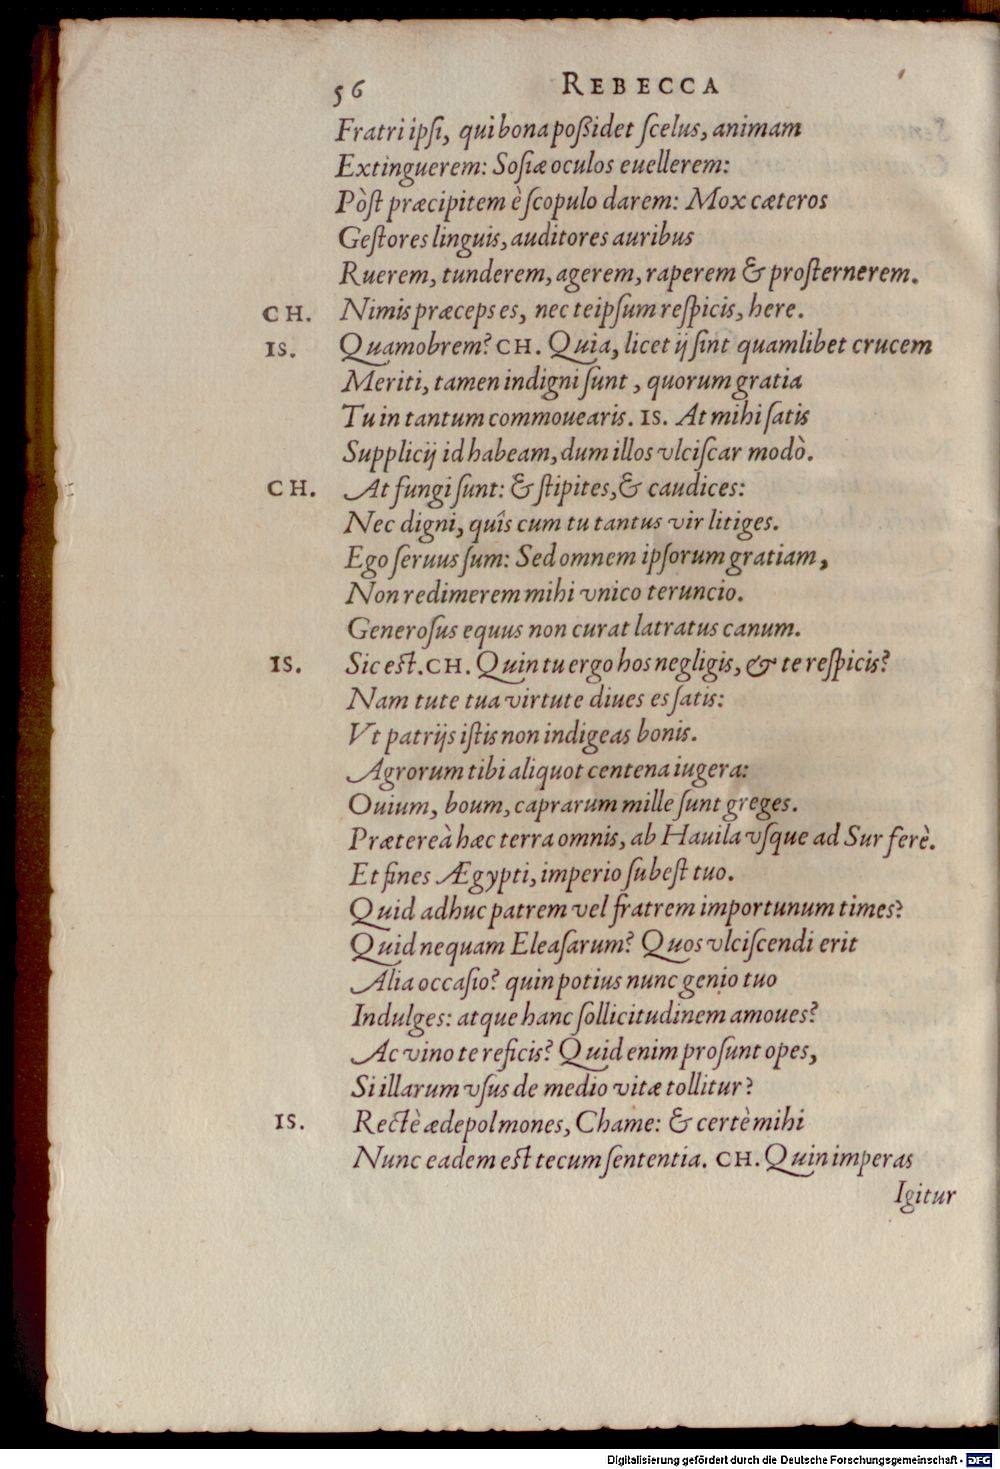 56 REBECCA
Fratri ipſi, qui bona poßidet ſcelus, animam
Extinguerem: Soſiæ oculos euellerem:
Pòſt præcipitem è ſcopulo darem: Mox cæteros
Geſtores linguis, auditores auribus
Ruerem, tunderem, agerem, raperem & proſternerem.
CH. Nimis præceps es, nec teipſum reſpicis, here.
IS. Quamobrem? CH. Quia, licet ij ſint quamlibet crucem
Meriti, tamen indigni ſunt, quorum gratia
Tu in tantum commouearis. IS. At mihi ſatis
Supplicij id habeam, dum illos vlciſcar modò.
CH. At fungi ſunt: & ſtipites, & caudices:
Nec digni, quîs cum tu tantus vir litiges.
Ego ſeruus ſum: Sed omnem ipſorum gratiam,
Non redimerem mihi vnico teruncio.
Generoſus equus non curat latratus canum.
IS. Sic eſt. CH. Quin tu ergo hos negligis, & te reſpicis?
Nam tute tua virtute diues es ſatis:
Vt patrijs iſtis non indigeas bonis.
Agrorum tibi aliquot centena iugera:
Ouium, boum, caprarum mille ſunt greges.
Prætereà hæc terra omnis, ab Hauila vſque ad Sur ferè.
Et fines Ægypti, imperio ſubeſt tuo.
Quid adhuc patrem vel fratrem importunum times?
Quid nequam Eleaſarum? Quos vlciſcendi erit
Alia occaſio? quin potius nunc genio tuo
Indulges: atque hanc ſollicitudinem amoues?
Ac vino te reficis? Quid enim proſunt opes,
Si illarum vſus de medio vitæ tollitur?
IS. Rectè ædepol mones, Chame: & certè mihi
Nunc eadem eſt tecum ſententia. CH. Quin imperas
Igitur
Digitalisierung gefördert durch die Deutsche Forschungsgemeinschaft - DFG